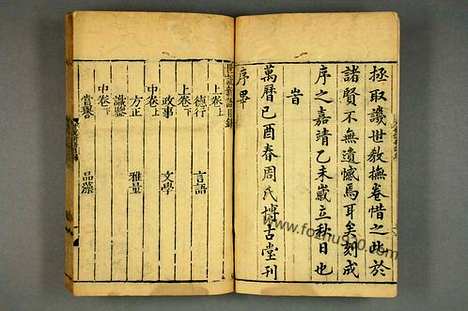 拯取譏世教撫卷惜之此於
諸賢不無遺憾焉耳矣刻成
序之嘉靖乙未歲立秋日也
旹
萬曆己酉春周氏博古堂刊
序畢
世說新語目錄
上卷上
德行
言語
上卷下
政事
文學
中卷上
方正
雅量
識鑒
中卷下
賞譽
品藻